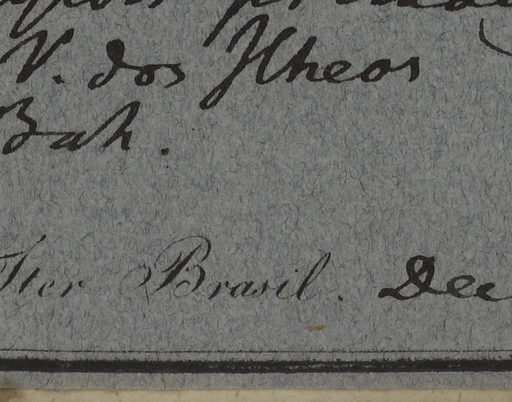 V. dos Ilheos
Bah.
Iter Brasil. Dec